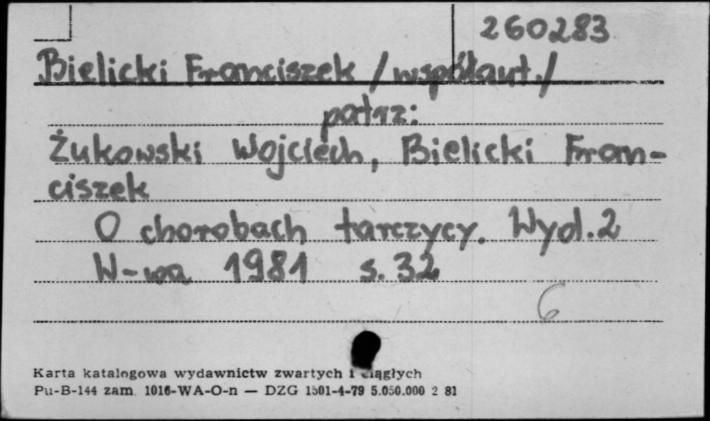 260283
Bielicki Franciszek /współaut./
patrz:
Żukowski Wojciech, Bielicki Fran-
ciszek
O chorobach tarczycy. Wyd. 2
W-wa 1981 s. 32
6
Karta katalogowa wydawnictw zwartych i ciągłych
Pu-B-144 zam. 1016-WA-O-n — DZG 1501-4-79 5.050.000 2 81